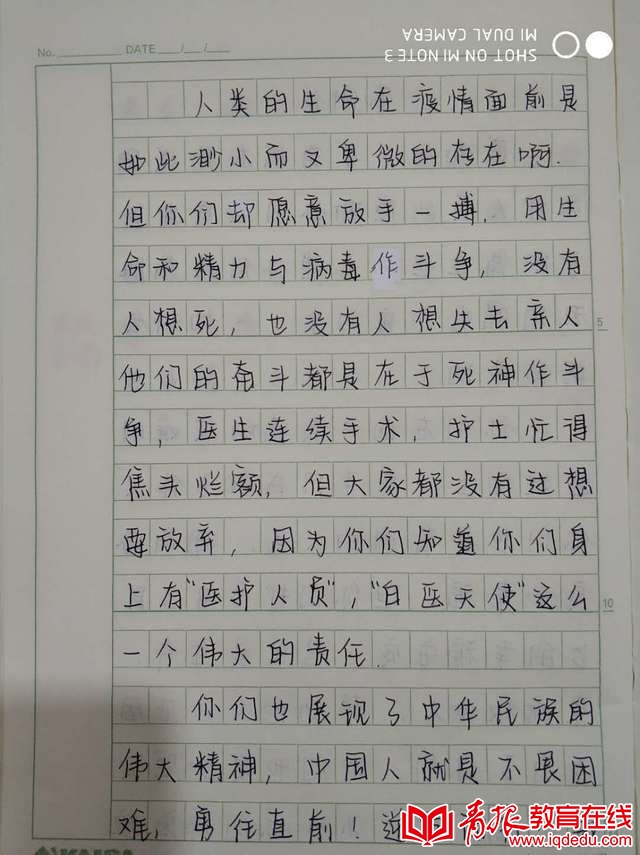 SHOT ON MI NOTE 3
MI DUAL CAMERA
No.
DATE / /
人类的生命在疫情面前是
如此渺小而又卑微的存在啊.
但你们却愿意放手一搏.用生
命和精力与病毒作斗争,没有
人想死,也没有人想失去亲人
5
他们的奋斗都是在于死神作斗
争,医生连续手术,护士忙得
焦头烂额,但大家都没有过想
要放弃,因为你们知道你们身
上有"医护人员","白医天使"这么
10
一个伟大的责任.
你们也展现了中华民族的
伟大精神,中国人就是不畏困
难,勇往直前!
青报教育在线
www.iqdedu.com